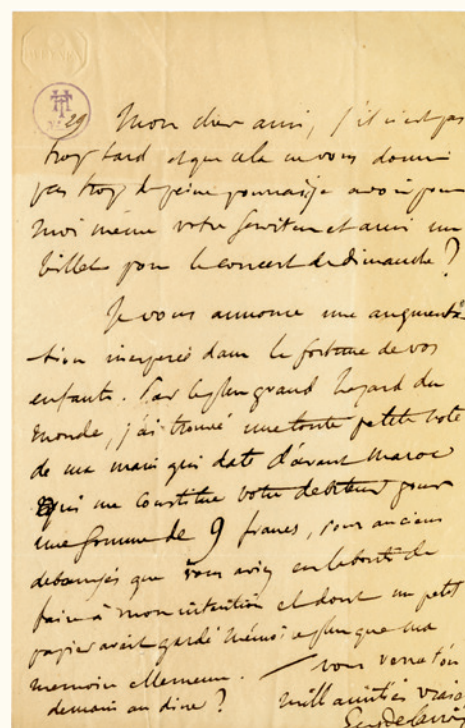 29
Mon cher ami, s'il n'est pas
trop tard et que cela ne vous donne
pas trop de peine pourrais je avoir pour
moi même votre serviteur et ami un
billet pour le concert de dimanche ?
Je vous annonce une augmenta-
tion inesperée dans la fortune de vos
enfants. Par le plus grand hazard du
monde, j'ai trouvé une toute petite note
de ma main qui date d'avant Maroc
qui me constitue votre debiteur pour
une somme de 9 francs, pour anciens
que vous aviez eu la bonté de
faire à mon intention et dont un petit
papier avait gardé mémoire plus que ma
memoire elle meme. — Vous verra t'on
demain au diné ? mille amitiés vraies
Eug Delacroix